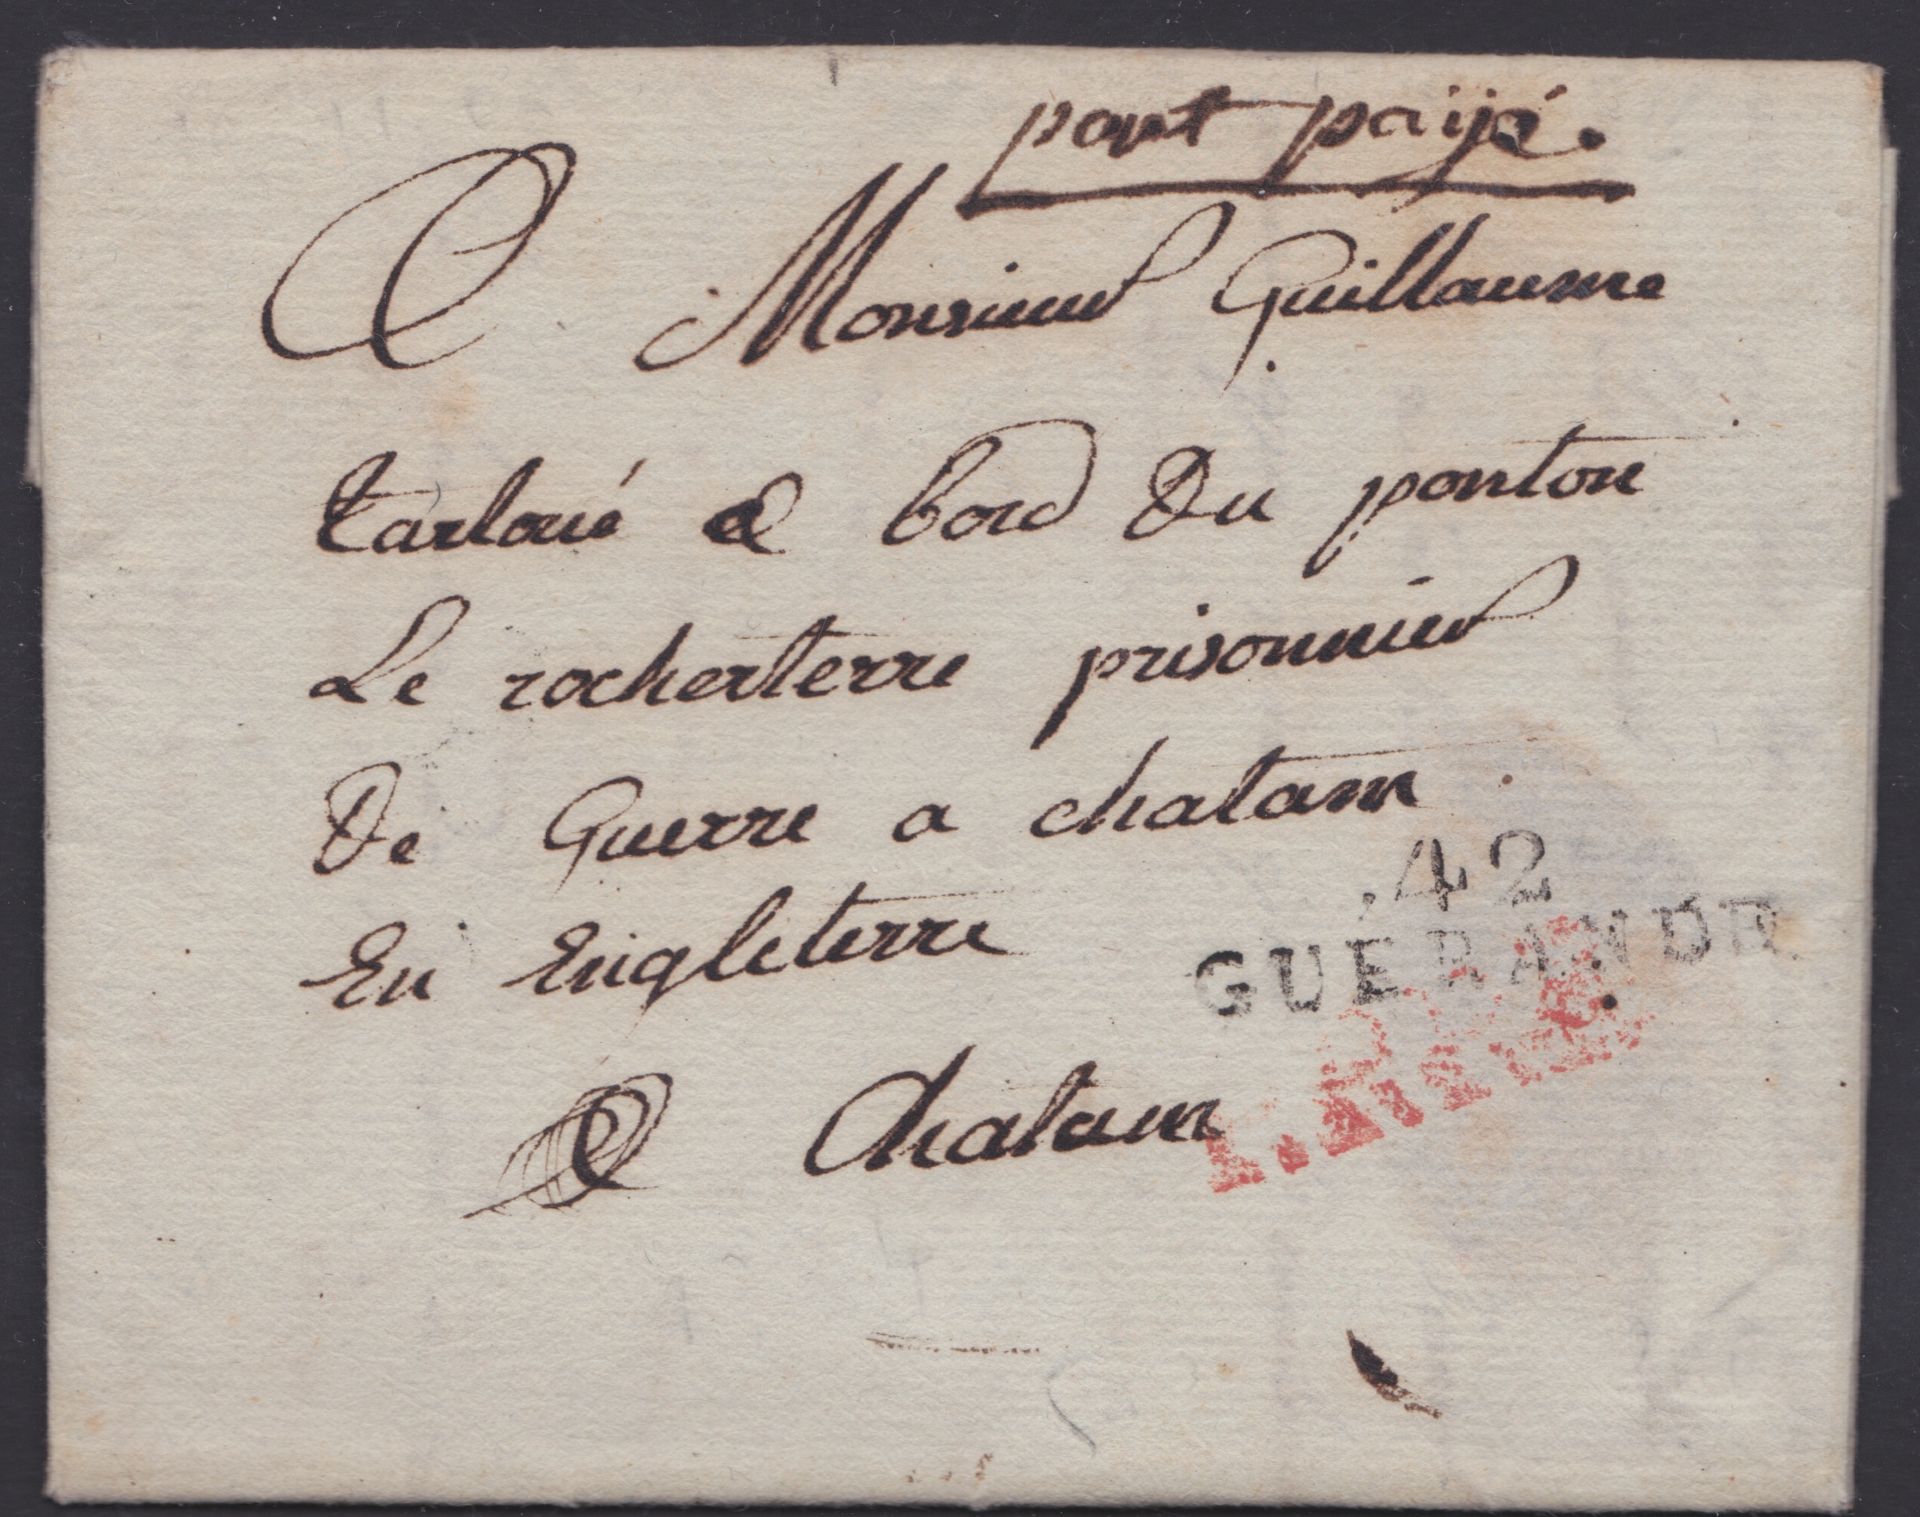 port paijé.
A Monsieur Guillaume
tarloué a bord Du ponton
Le rocherterre prisonnier
De Guerre a chatam
En Engleterre
A Chatam
42
GUÉRANDE